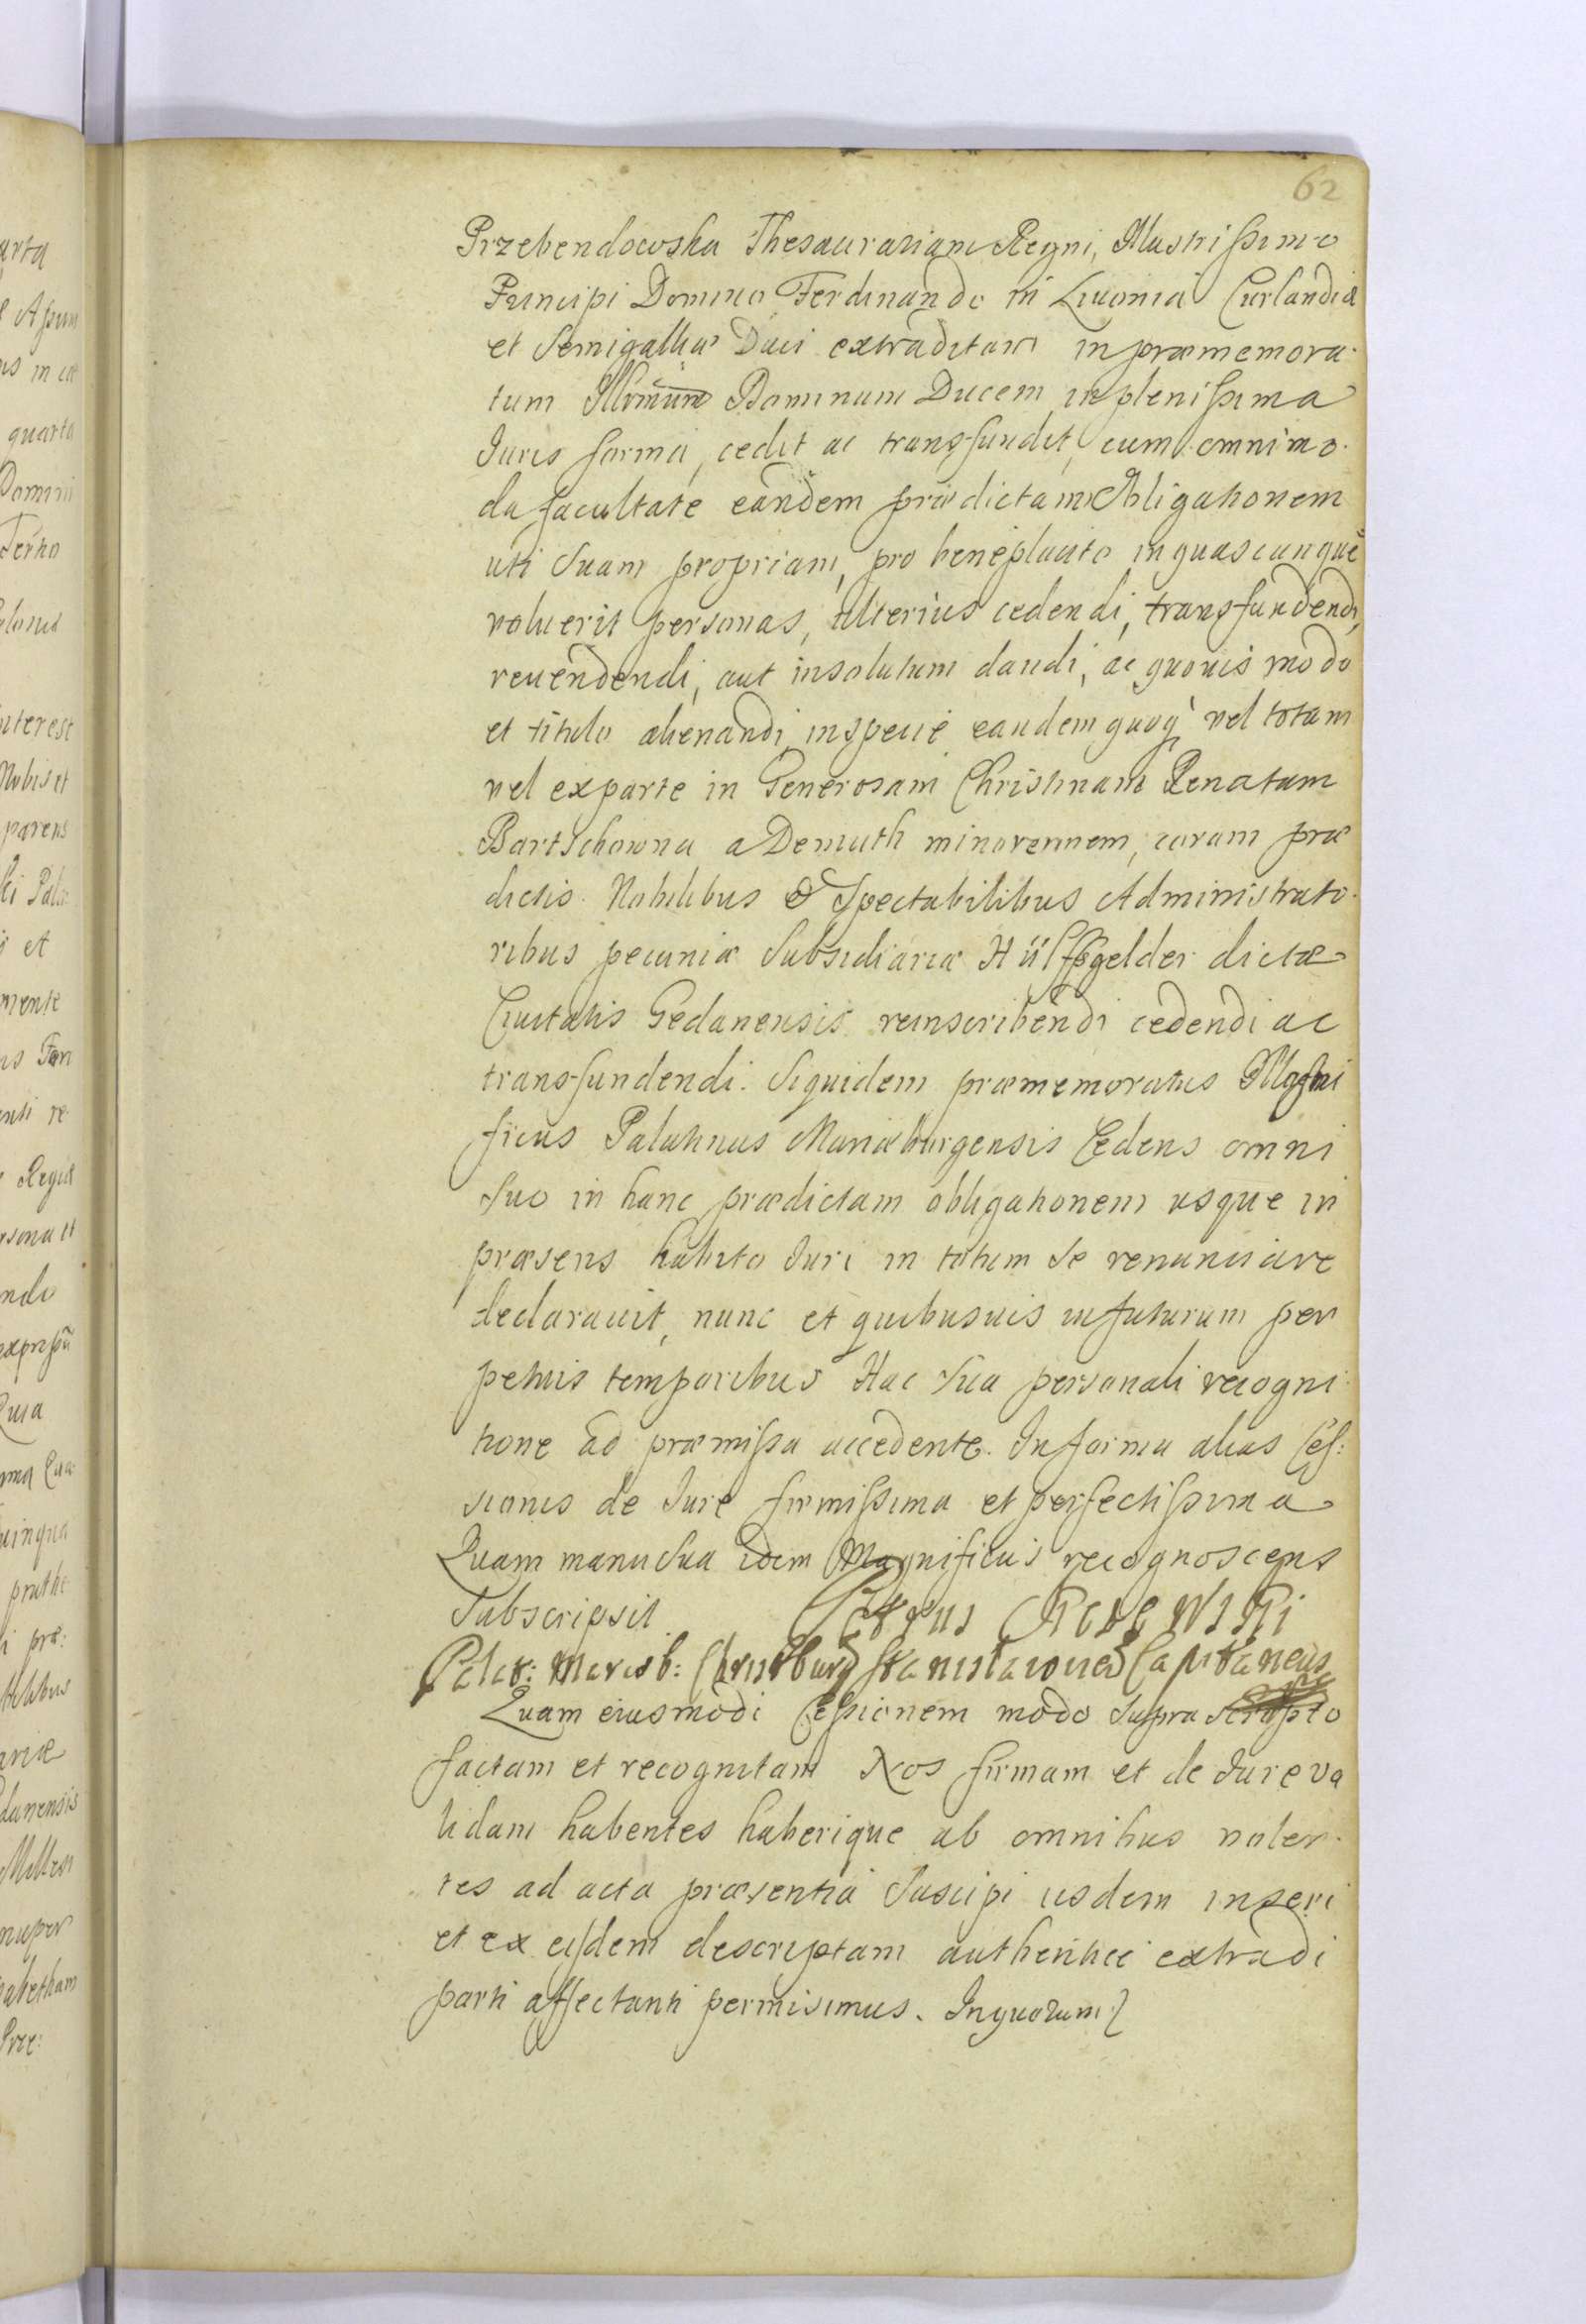 62
Przebendowska Thesaurariam Regni, Illustrissimo
Principi Domino Ferdinando in Livonia Curlandiæ
et Semigalliæ Duci extraditam in præmemora-
tum Illrmum Dominum Ducem in plenissima
Iuris forma, cedit ac transfundit, cum omnimo-
da facultate eandem prædictam Obligationem
uti Suam propriam, pro beneplacito in quascunque
voluerit personas, ulterius cedendi, transfundendi,
revendendi, aut insolutum dandi, ac quovis modo
et titulo alienandi, in specie eandem quoq vel totam
vel exparte in Generosam Christinam Renatam
Bartschowna a Demuth minorennem, coram præ
dictis Nobilibus & Spectabilibus Administrato-
ribus pecuniæ Subsidiariæ Hülffsgelder dictæ
Civitatis Gedanensis reinscribendi cedendi ac
transfundendi. Siquidem præmemoratus Magni
ficus Palatinus Mariæburgensis Cedens omni
Suo in hanc prædictam obligationem usque in
præsens habito Iuri in totum Se renunciare
declaravit, nunc et quibusvis in futurum per
petuis temporibus Hac Sua personali recogni-
tione ad præmissa accedente. In forma alias Ces:
sionis de Iure firmissima et perfectissima
Quam manu Sua idem Magnificus recognoscens
Subscripsit Petrus
Palat: Marieb: Christburg Capitaneus
Quam eiusmodi Cessionem modo Supra scripto
factam et recognitam Nos firmam et de Iure va
lidam habentes haberique ab omnibus volen-
tes ad acta præsentia Suscipi iisdem inseri
et ex eisdem descriptam authentice extradi
parti affectanti permisimus. In quorum